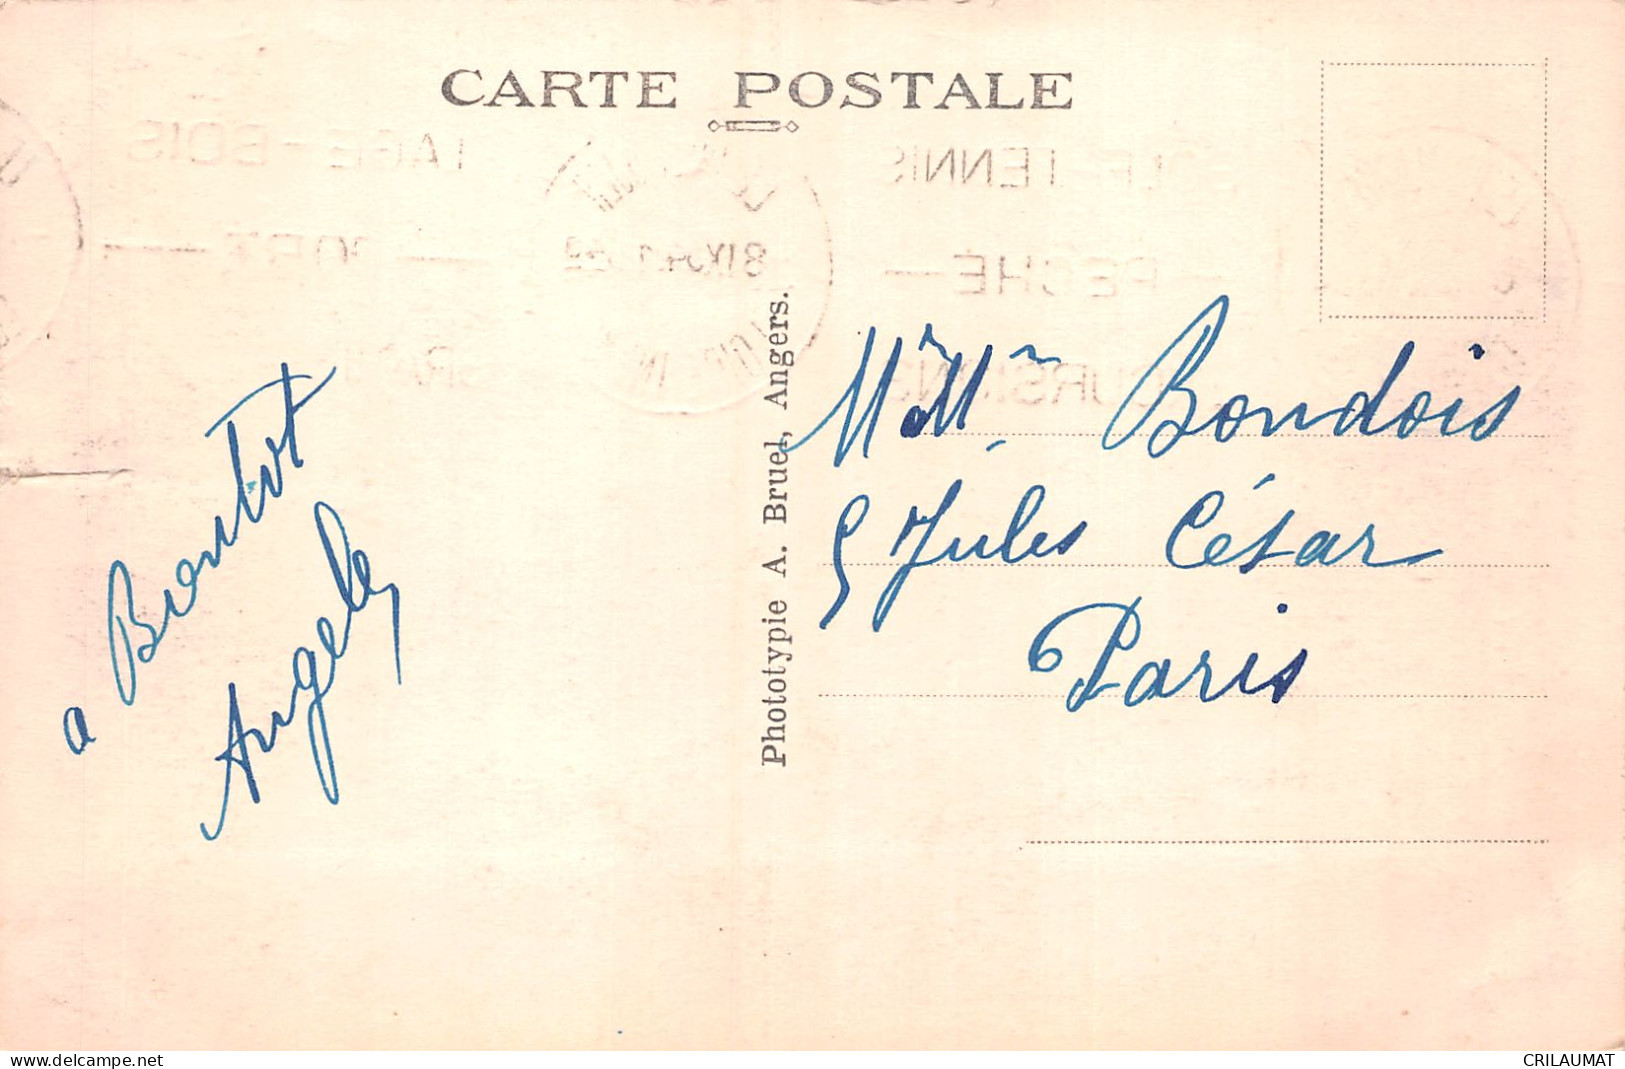 CARTE POSTALE
TENNIS
PECHE
BOIS
Phototypie A. Bruel, Angers.
a Bientot
Angely
Mr Mme Bondois
5 Jules César
Paris
www.delcampe.net
CRILAUMAT